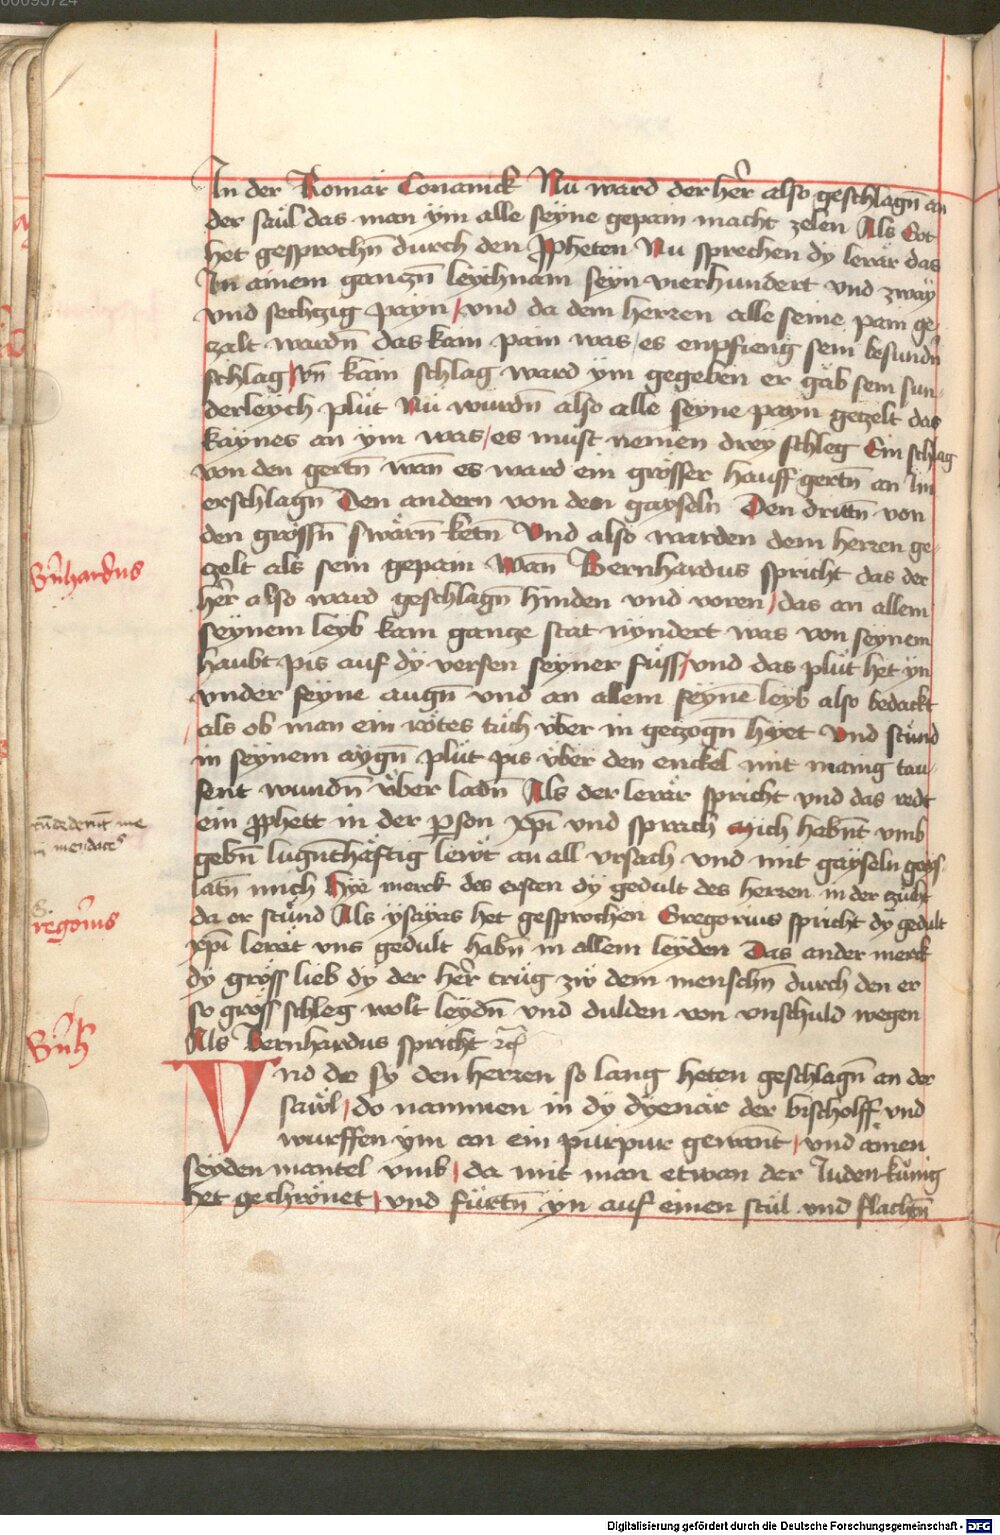 00095724
In der Romär Conanick Nü ward der her̄ also geschlagn̄ an
der säul das man ÿm alle seyne gepain macht zelen Als Got
het gesprochn̄ durch den ꝓpheten Nu sprechen dy lerär das
In ainem ganczn̄ leychnam seyn vierhundert vnd zway
vnd sechczig payn / vnd da dem herren alle seine pain ge-
czalt wardn̄ das kain pain was / es enpfieng sein besundr̄
schlag / vn̄ kain schlag ward ym gegeben er gäb sein sun-
derleych plüt Nü wurdn̄ also alle seyne payn geczelt das
kaynes an ym was / es must nemen drey schleg Ein schlag
von den gertn̄ wan̄ es ward ein grösser hauff gertn̄ an Im
erschlagn̄ Den andern von den gayseln Den drittn̄ von
den grössn̄ swärn̄ ketn̄ Vnd also warden dem herren ge-
czelt als sein gepain Wan̄ Bernhardus spricht das der
Bn̄hardus
her̄ also ward geschlagn̄ hinden vnd voren / das an allem
seynem leyb kain gancze stat nyndert was von seynem
haubt pis auf dÿ versen seyner füss / vnd das plüt het yn
vnder seyne augn̄ vnd an allem seynē leyb also bedackt
als ob man ein rötes tüch vber in geczogn̄ hyet Vnd stünd
in seynem aygn̄ plüt pis vber den enckel mit manig tau-
sent wundn̄ vber ladn̄ Als der lerär spricht vnd das redt
ein ꝓphett in der ꝑson xp̄i vnd sprach Mich habn̄t vmb
gebn̄ lugn̄thäftig lewt an all vrsach vnd mit gayseln geys-
latn̄ mich Hye merck des ersten dy gedult des herren in der czücht
da er stünd Als ysayas het gesprochen Gregorius spricht dy gedult
Gregori9us
xp̄i lerät vns gedult habn̄ in allem leyden Das ander merck
dy gröss lieb dy der her̄ trüg zw dem menschn̄ durch den er
so gross schleg wolt leydn̄ vnd dulden von vnschuld wegen
Bn̄h
Als Bernhardus spricht ꝛc̄
Vnd do sy den herren so lang heten geschlagn̄ an der
säwl / do nammen in dy dyenär der bischolff vnd
wurffen ym an ein purpur gewant / vnd ainen
seyden mantel vmb / da mit man etwan der Juden künig
het gechrönet / vnd fürtn̄ yn auf einen stül vnd flachtn̄
Digitalisierung gefördert durch die Deutsche Forschungsgemeinschaft - DFG